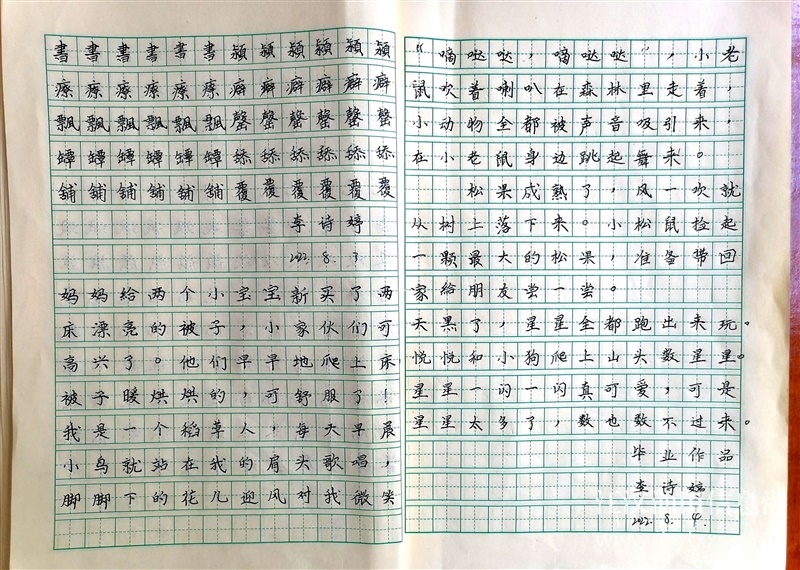 書書書書書書潁潁潁潁潁潁
瘵瘵瘵瘵瘵瘵癖癖癖癖癖癖
飄飄飄飄飄飄罄罄罄罄罄罄
罈罈罈罈罈罈舔舔舔舔舔舔
舖舖舖舖舖舖覆覆覆覆覆覆
李诗婷
2022.8.3
妈妈给两个小宝宝新买了两
床漂亮的被子，小家伙们可
高兴了。他们早早地爬上床
被子暖烘烘的，可舒服了！
我是一个稻草人，每天早晨
小鸟就站在我的肩头歌唱，
脚脚下的花儿迎风对我微笑
“嘀哒哒，嘀哒哒”，小老
鼠吹着喇叭在森林里走着，
小动物全都被声音吸引来，
在小老鼠身边跳起舞来。
松果成熟了，风一吹就
从树上落下来。小松鼠捡起
一颗最大的松果，准备带回
家给朋友尝一尝。
天黑了，星星全都跑出来玩。
悦悦和小狗爬上山头数星星。
星星一闪一闪真可爱，可是
星星太多了，数也数不过来。
毕业作品
李诗婷
2022.8.4.